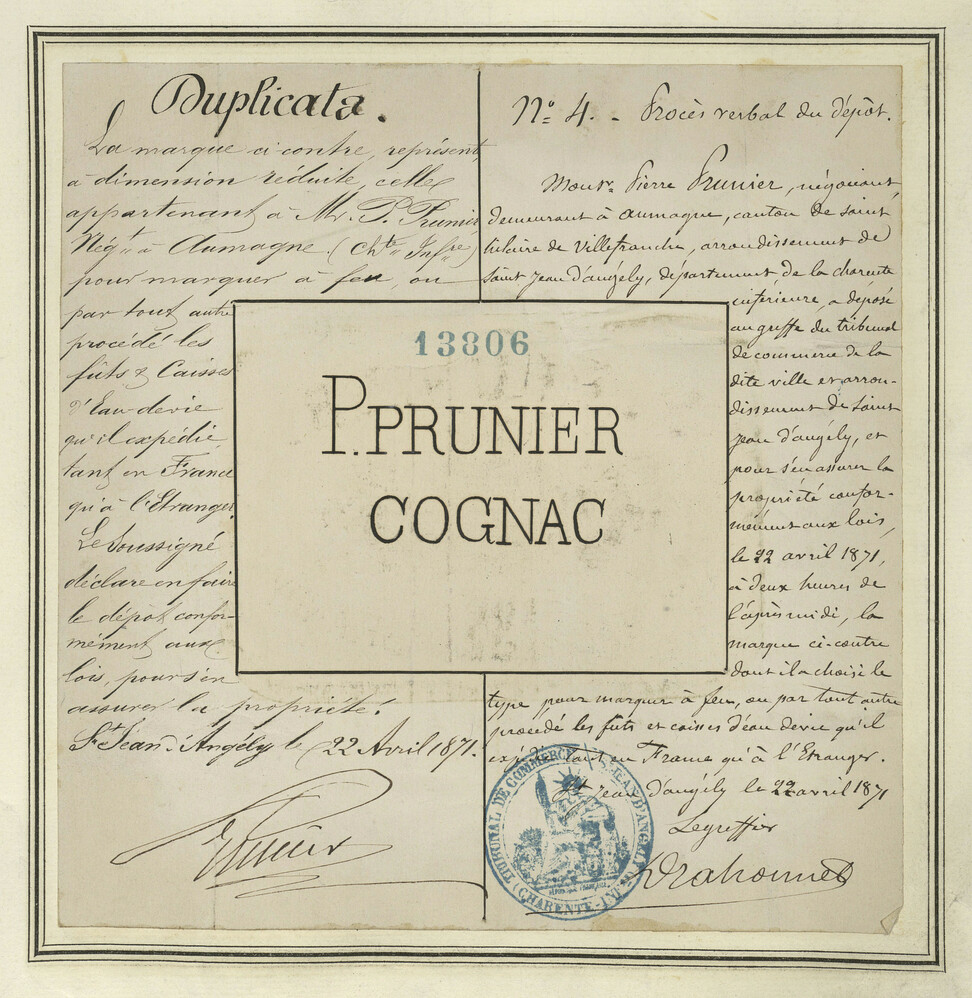 Duplicata.
La marque ci contre, représente,
à dimension réduite, celle
appartenant à Mr. P. Prunier
Négt. à Aumagne (Chte. Infre.)
pour marquer à feu, ou
par tout autre
procédé les
fûts & Caisses
d'Eau-de-vie
qu'il expédie,
tant en France
qu'à l'Etranger.
Le Soussigné
déclare en faire
le dépôt confor-
mément aux
lois, pour s'en
assurer la propriété.
St. Jean d'Angély le 22 Avril 1871.
13806
P. PRUNIER
COGNAC
No. 4. - Procès verbal du dépôt.
Monsr. Pierre Prunier, négociant,
demeurant à aumagne, canton de Saint
hilaire de Villefranche, arrondissement de
Saint Jean d'angély, département de la charente
inférieure, a déposé
au greffe du tribunal
de commerce de la
dite ville et arron-
dissement de Saint
Jean d'angély, et
pour s'en assurer la
propriété confor-
mément aux lois,
le 22 avril 1871,
à deux heures de
l'après midi, la
marque ci-contre
dont il a choisi le
type pour marquer à feu, ou par tout autre
procédé les futs et caisses d'eau de vie qu'il
expédie tant en France qu'à l'Etranger.
St Jean d'angély le 22 avril 1871
Le greffier
TRIBUNAL DE COMMERCE ST JEAN D'ANGELY
RÉPUBLIQUE FRANÇAISE
(CHARENTE-INF.)